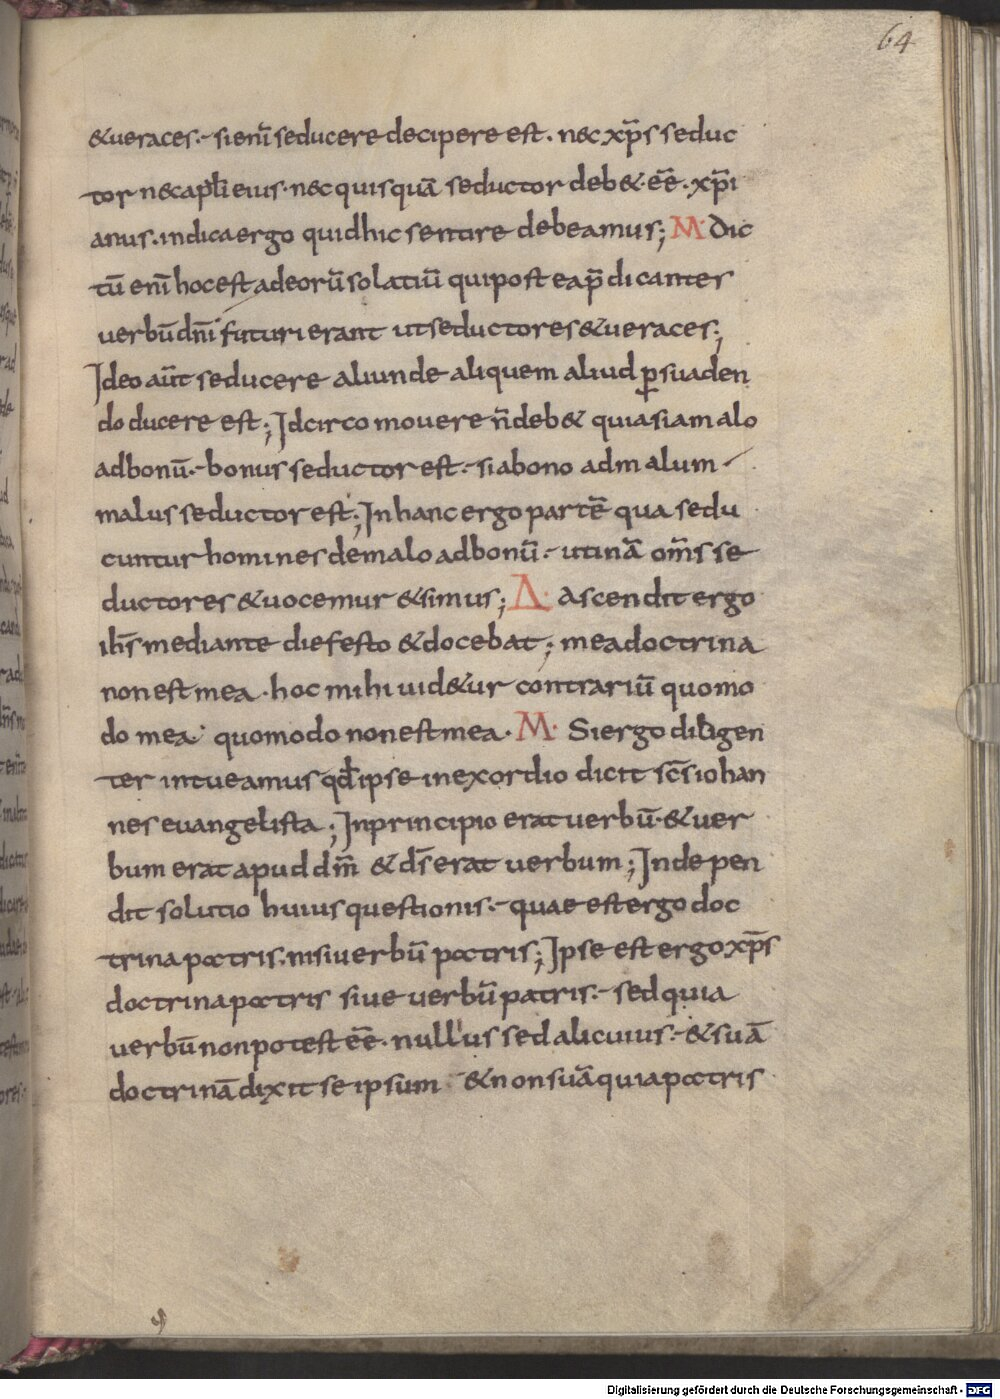 64
&ueraces. sieni̅ seducere decipere est. nec xp̅s seduc
tor nec apl̅i eius. nec quisqua̅ seductor deb&. ee̅. xp̅i
anus. indica ergo quid hic sentire debeamus; M. Dic
tu̅ eni̅ hoc est adeoru̅ solatiu̅ qui post ea p̅dicantes
uerbu̅ dn̅i futuri erant ut seductores & ueraces;
Ideo au̅t seducere aliunde aliquem aliud ꝑsuaden
do ducere est; Idcirco mouere n̅ deb& quia si a malo
ad bonu̅. bonus seductor est. si a bono ad malum
malus seductor est; In hanc ergo parte̅ qua sedu
cuntur homines de malo ad bonu̅. utina̅ om̅s se
ductores & uocemur & simus; Δ. Ascendit ergo
ih̅s mediante die festo & docebat; mea doctrina
non est mea. hoc mihi uid&ur contrariu̅ quomo
do mea quomodo non est mea. M. Si ergo diligen
ter intueamus qd̅ ipse in exordio dicit sc̅s iohan
nes euangelista; In principio erat uerbu̅. & uer
bum erat apud dm̅ & ds̅ erat uerbum; Inde pen
dit solutio huius questionis. quae est ergo doc
trina patris. nisi uerbu̅ patris; Ipse est ergo xp̅s
doctrina patris siue uerbu̅ patris. sed quia
uerbu̅ non potest ee̅. nullius sed alicuius. & sua̅
doctrina̅ dixit se ipsum & non sua̅ quia patris
Digitalisierung gefördert durch die Deutsche Forschungsgemeinschaft - DFG